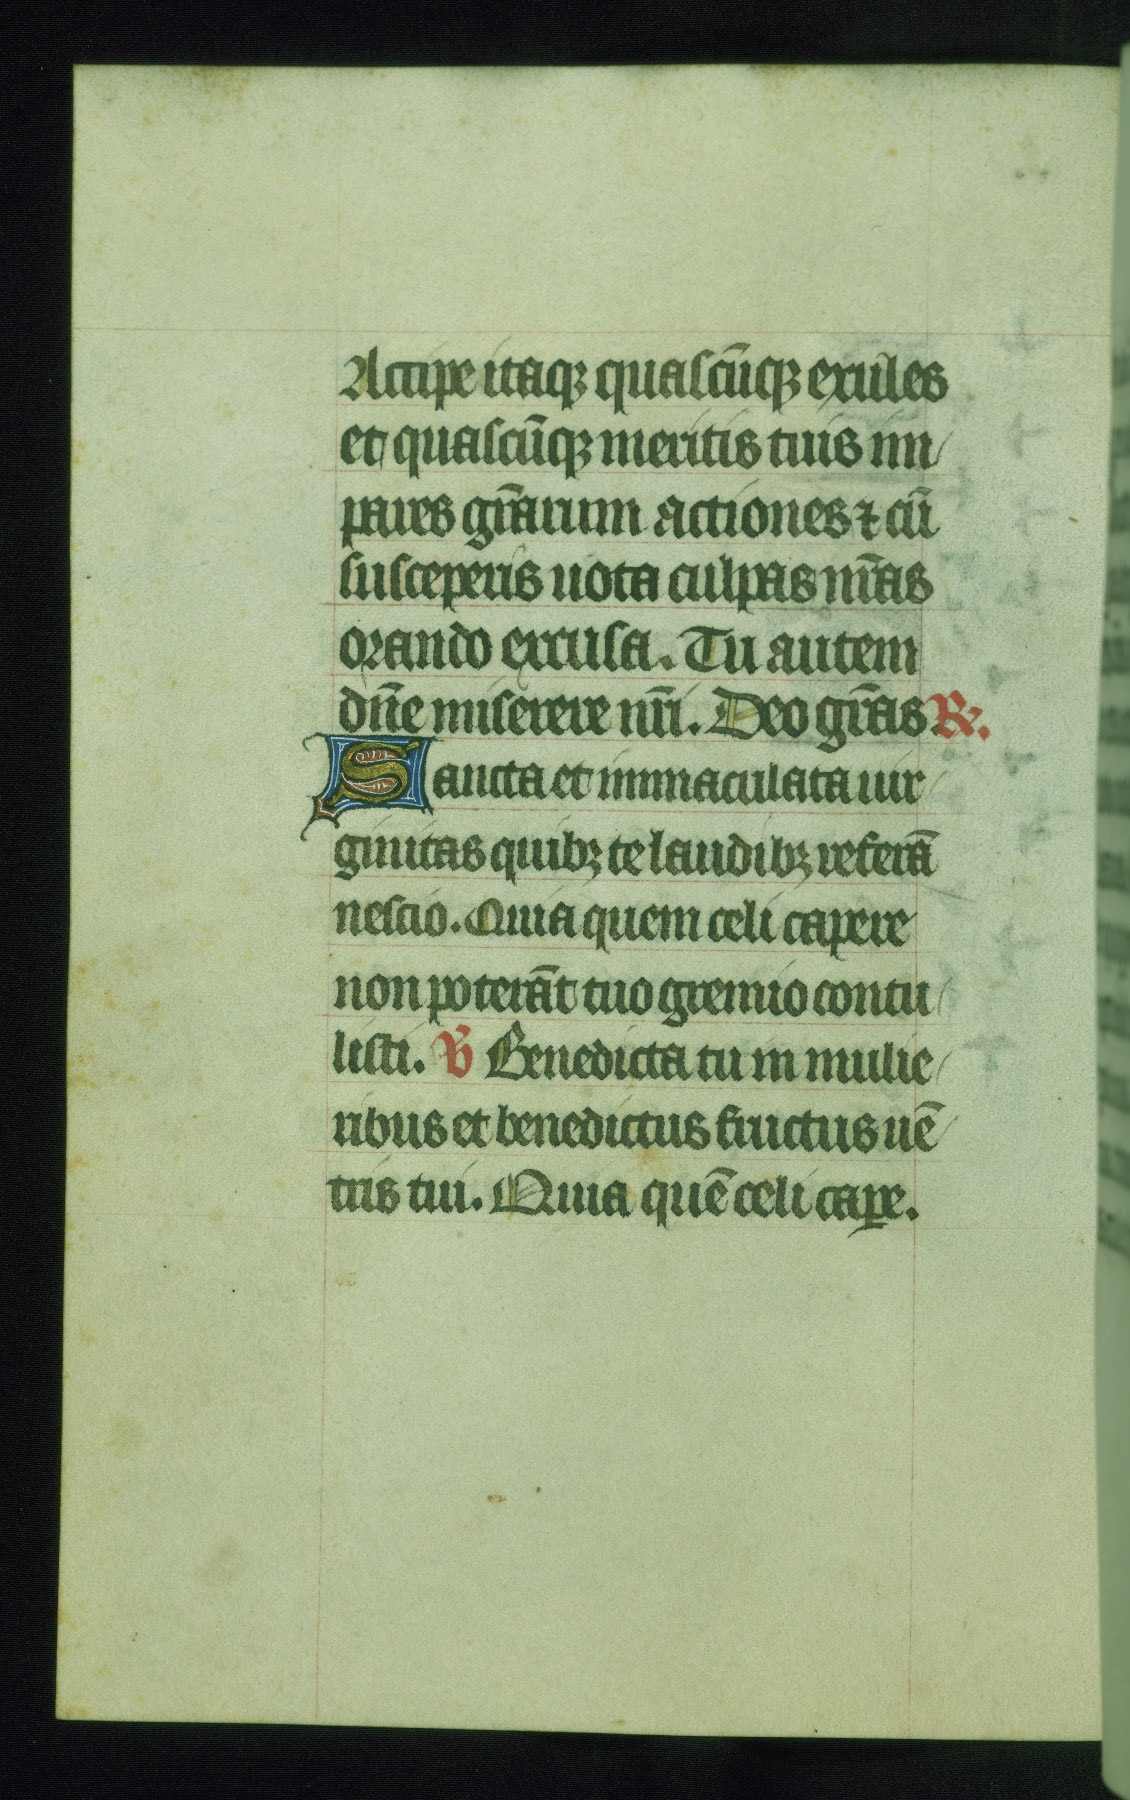 Accipe itaqꝫ quascūqꝫ exules
et quascūqꝫ meritis tuis im
pares gr̄arum actiones ⁊ cū
susceperis uota culpas nr̄as
orando excusa. Tu autem
dn̄e miserere nr̄i. Deo gr̄as ℟.
Sancta et immaculata uir
ginitas quibꝫ te laudibꝫ referā
nescio. Quia quem celi capere
non poterāt tuo gremio contu
listi. ℣ Benedicta tu in mulie
ribus et benedictus fructus uē
tris tui. Quia quē celi caꝑe.